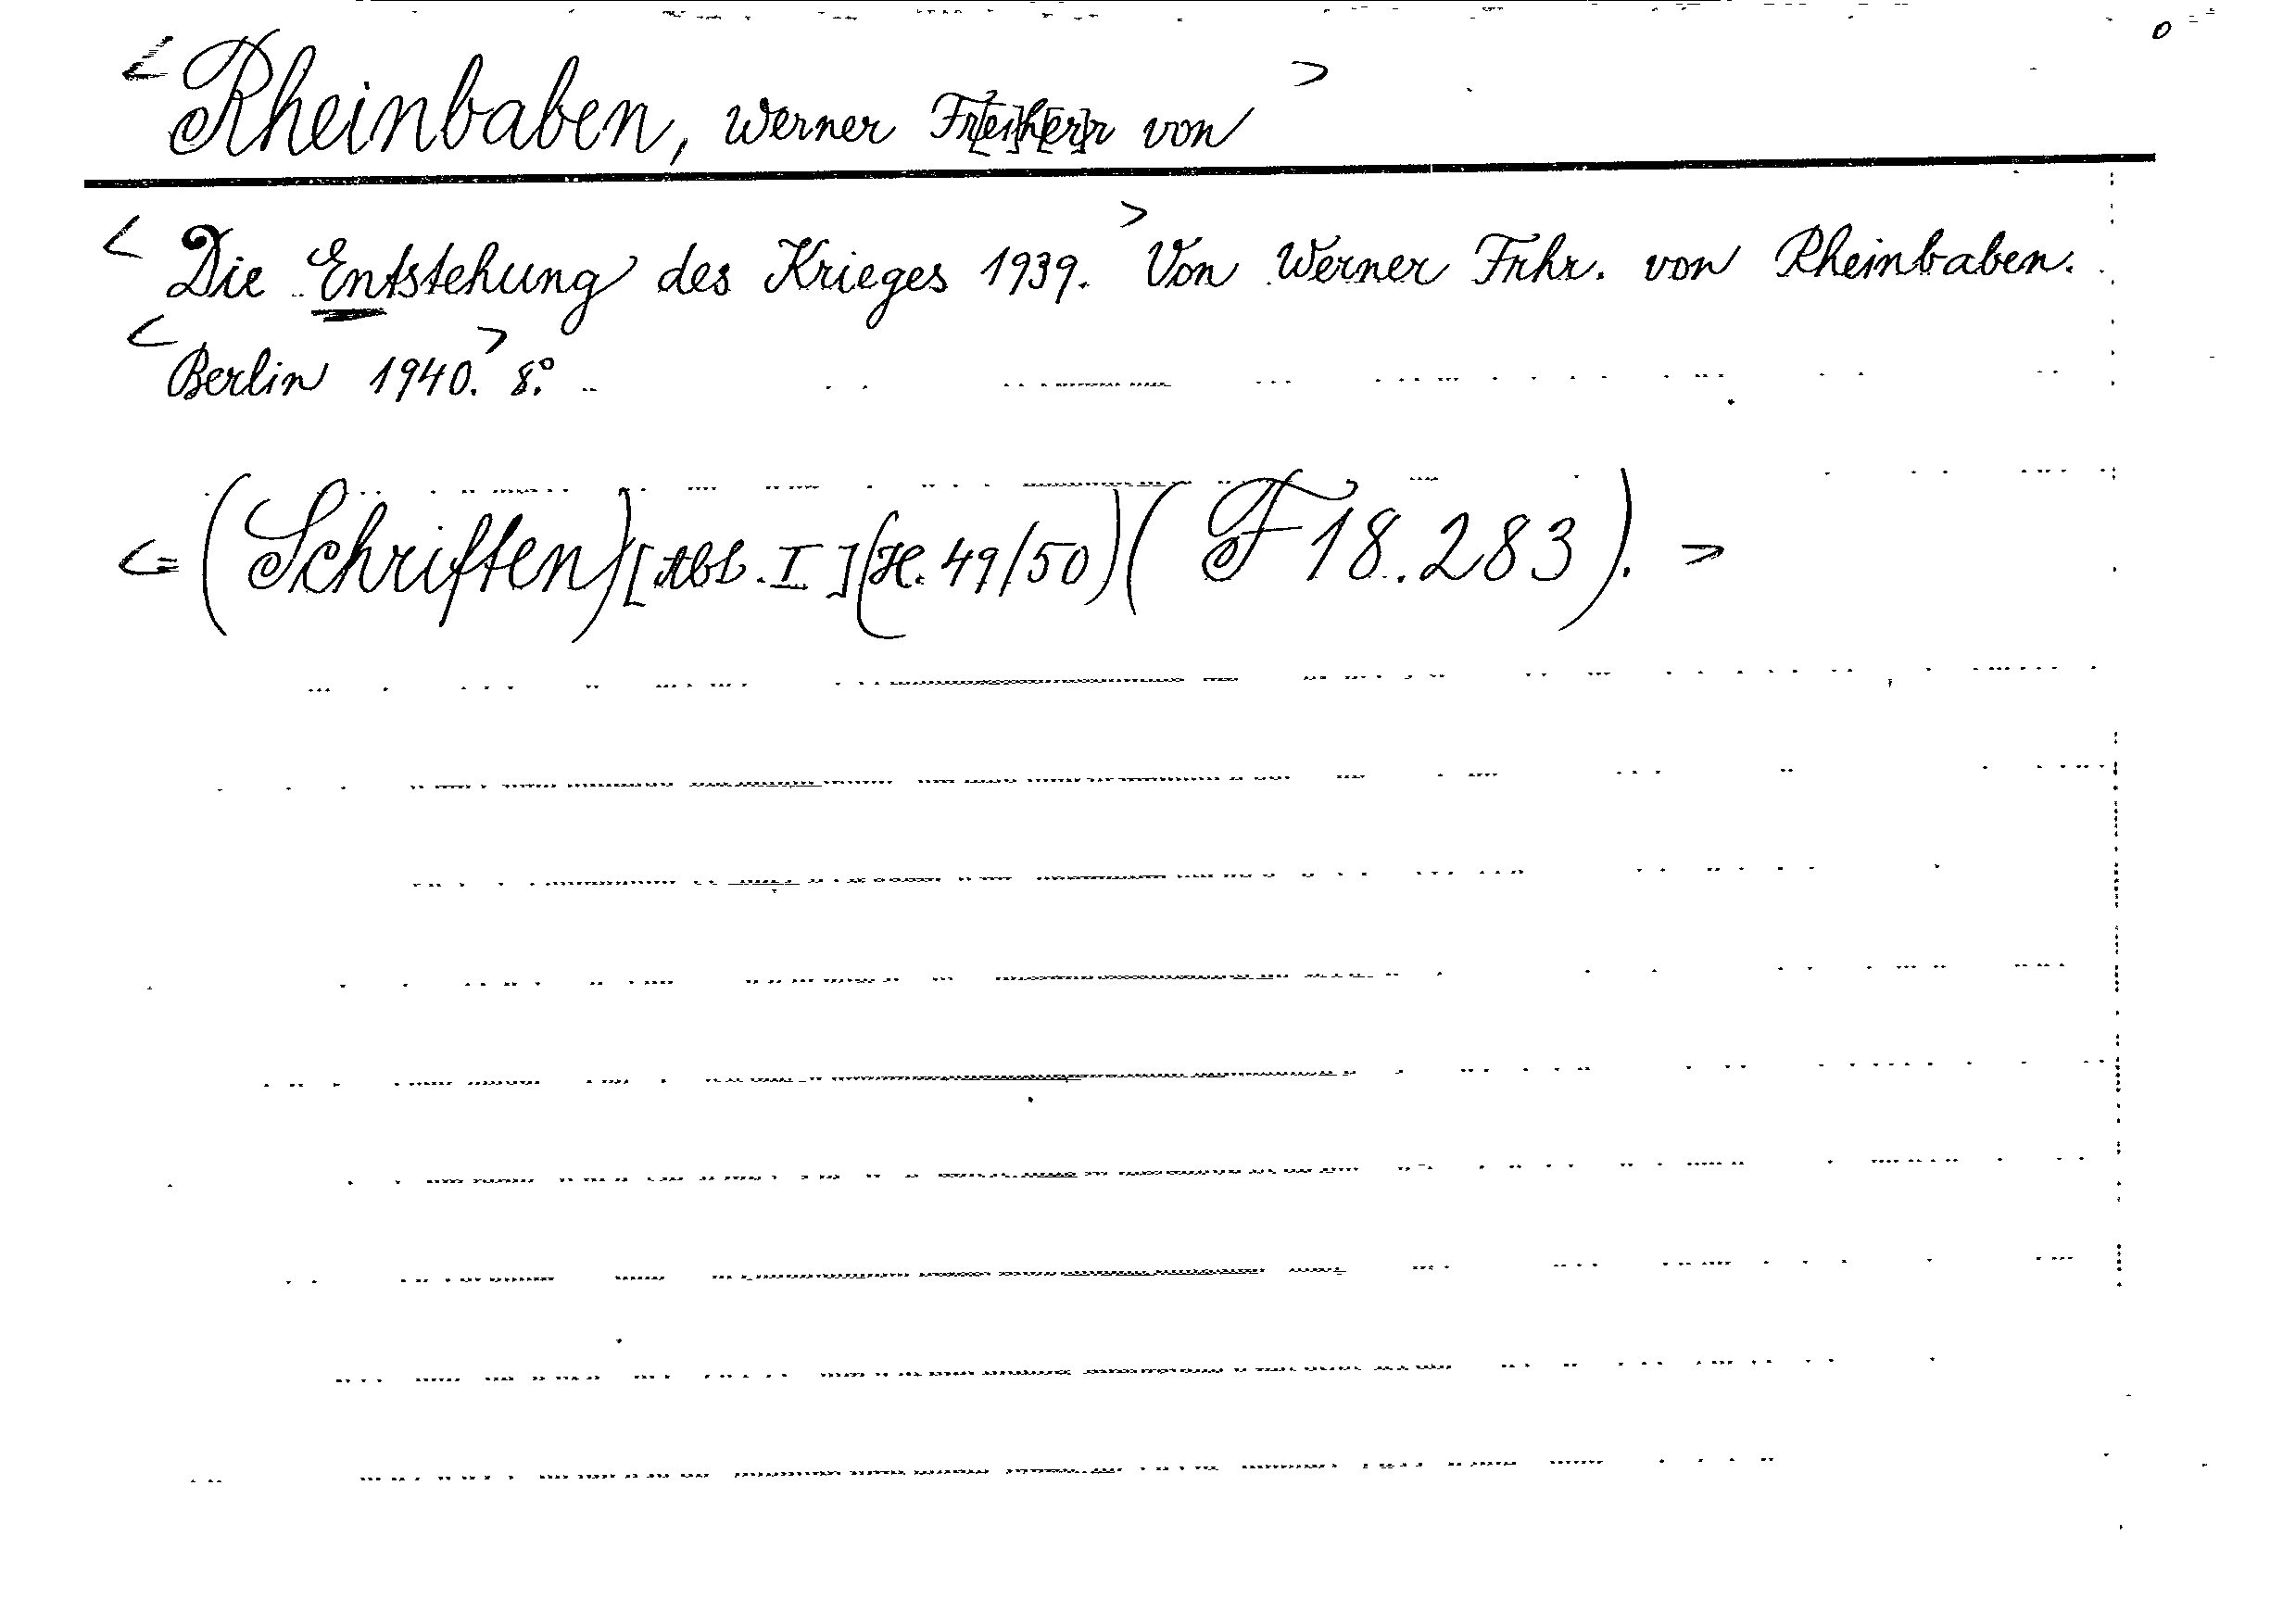 < Rheinbaben, Werner Fr[ei]h[er]r von >
< Die Entstehung des Krieges 1939. > Von Werner Frhr. von Rheinbaben.
< Berlin 1940. > 8°.
<= (Schriften) [Abt. I] (H. 49/50) (F 18.283). >